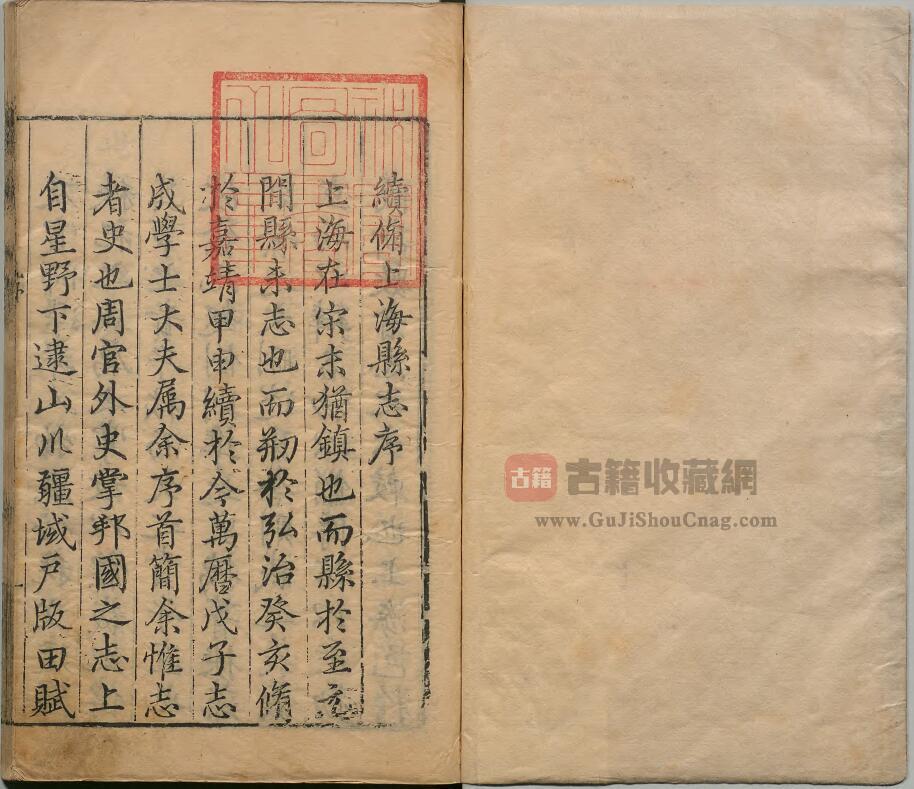 續脩上海縣志序
上海在宋末猶鎮也而縣於至元
間縣未志也而刱於弘治癸亥脩
於嘉靖甲申續於今萬曆戊子志
成學士大夫属余序首簡余惟志
者史也周官外史掌邦國之志上
自星野下逮山川疆域戶版田賦
序
一
古籍
古籍收藏網
www.GuJiShouCnag.com